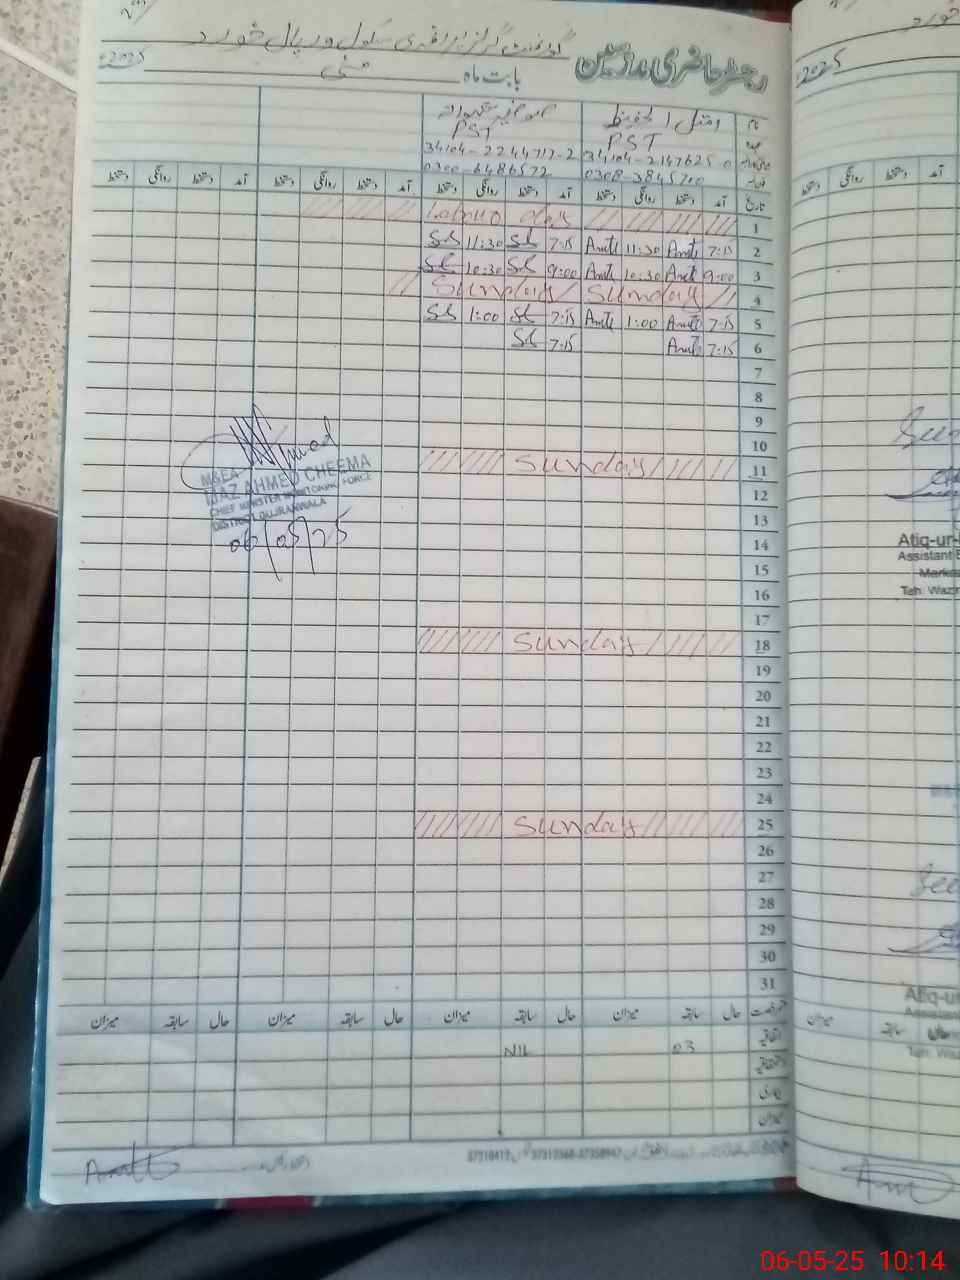 رجسٹر حاضری ملازمین گورنمنٹ گرلز پرائمری سکول ورپال خورد
بابت ماہ مئی 2025
نام امتل الحفیظ
PST PST
34104-2147625-0 34104-2244717-2
0308-3845710 0300-6486572
تاریخ آمد دستخط روانگی دستخط آمد دستخط روانگی دستخط آمد دستخط روانگی دستخط آمد دستخط روانگی دستخط
1 Labour day
2 7:15 Amtl 11:30 Amtl 7:15 SL 11:30 SL
3 9:00 Amtl 10:30 Amtl 9:00 SL 10:30 SL
4 Sunday Sunday
5 7:15 Amtl 1:00 Amtl 7:15 SL 1:00 SL
6 7:15 Amtl 7:15 SL
7
8
9
10
11 Sunday
12
13
14
15
16
17
18 Sunday
19
20
21
22
23
24
25 Sunday
26
27
28
29
30
31
حال سابقہ میزان حال سابقہ میزان حال سابقہ میزان حال سابقہ میزان
اتفاقیہ 03 NIL
میزان
Ahmad
M&EA
IJAZ AHMED CHEEMA
CHIEF MINISTER MONITORING FORCE
DISTRICT GUJRANWALA
06/05/25
2025
روانگی دستخط آمد
Atiq-ur-
Assistant E
Marka
Teh. Wazi
Atiq-u
Assistan
میزان سابقہ حال
Teh. Waz
06-05-25 10:14